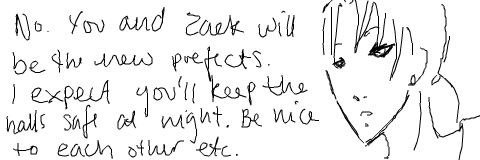 No. You and Zack will
be the new prefects.
I expect you'll keep the
halls safe at night. Be nice
to each other etc.